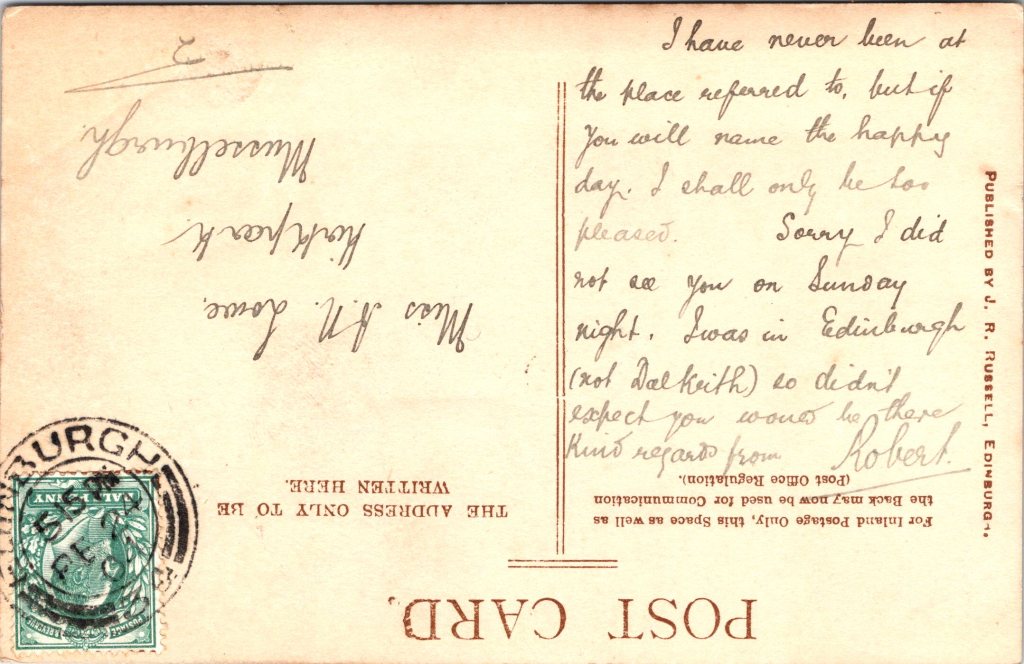 I have never been at
the place referred to, but if
you will name the happy
day. I shall only be too
pleased. Sorry I did
not see you on Sunday
night. I was in Edinburgh
(not Dalkeith) so didn't
expect you would be there
Kind regards from Robert.
POST CARD.
For Inland Postage Only, this Space as well as
the Back may now be used for Communication
(Post Office Regulation).
THE ADDRESS ONLY TO BE
WRITTEN HERE.
Miss A.N. Lowe,
Kirkpark
Musselburgh.
2
PUBLISHED BY J. R. RUSSELL, EDINBURGH.
EDINBURGH
5 15 PM
FE 24
POSTAGE & REVENUE
HALF PENNY